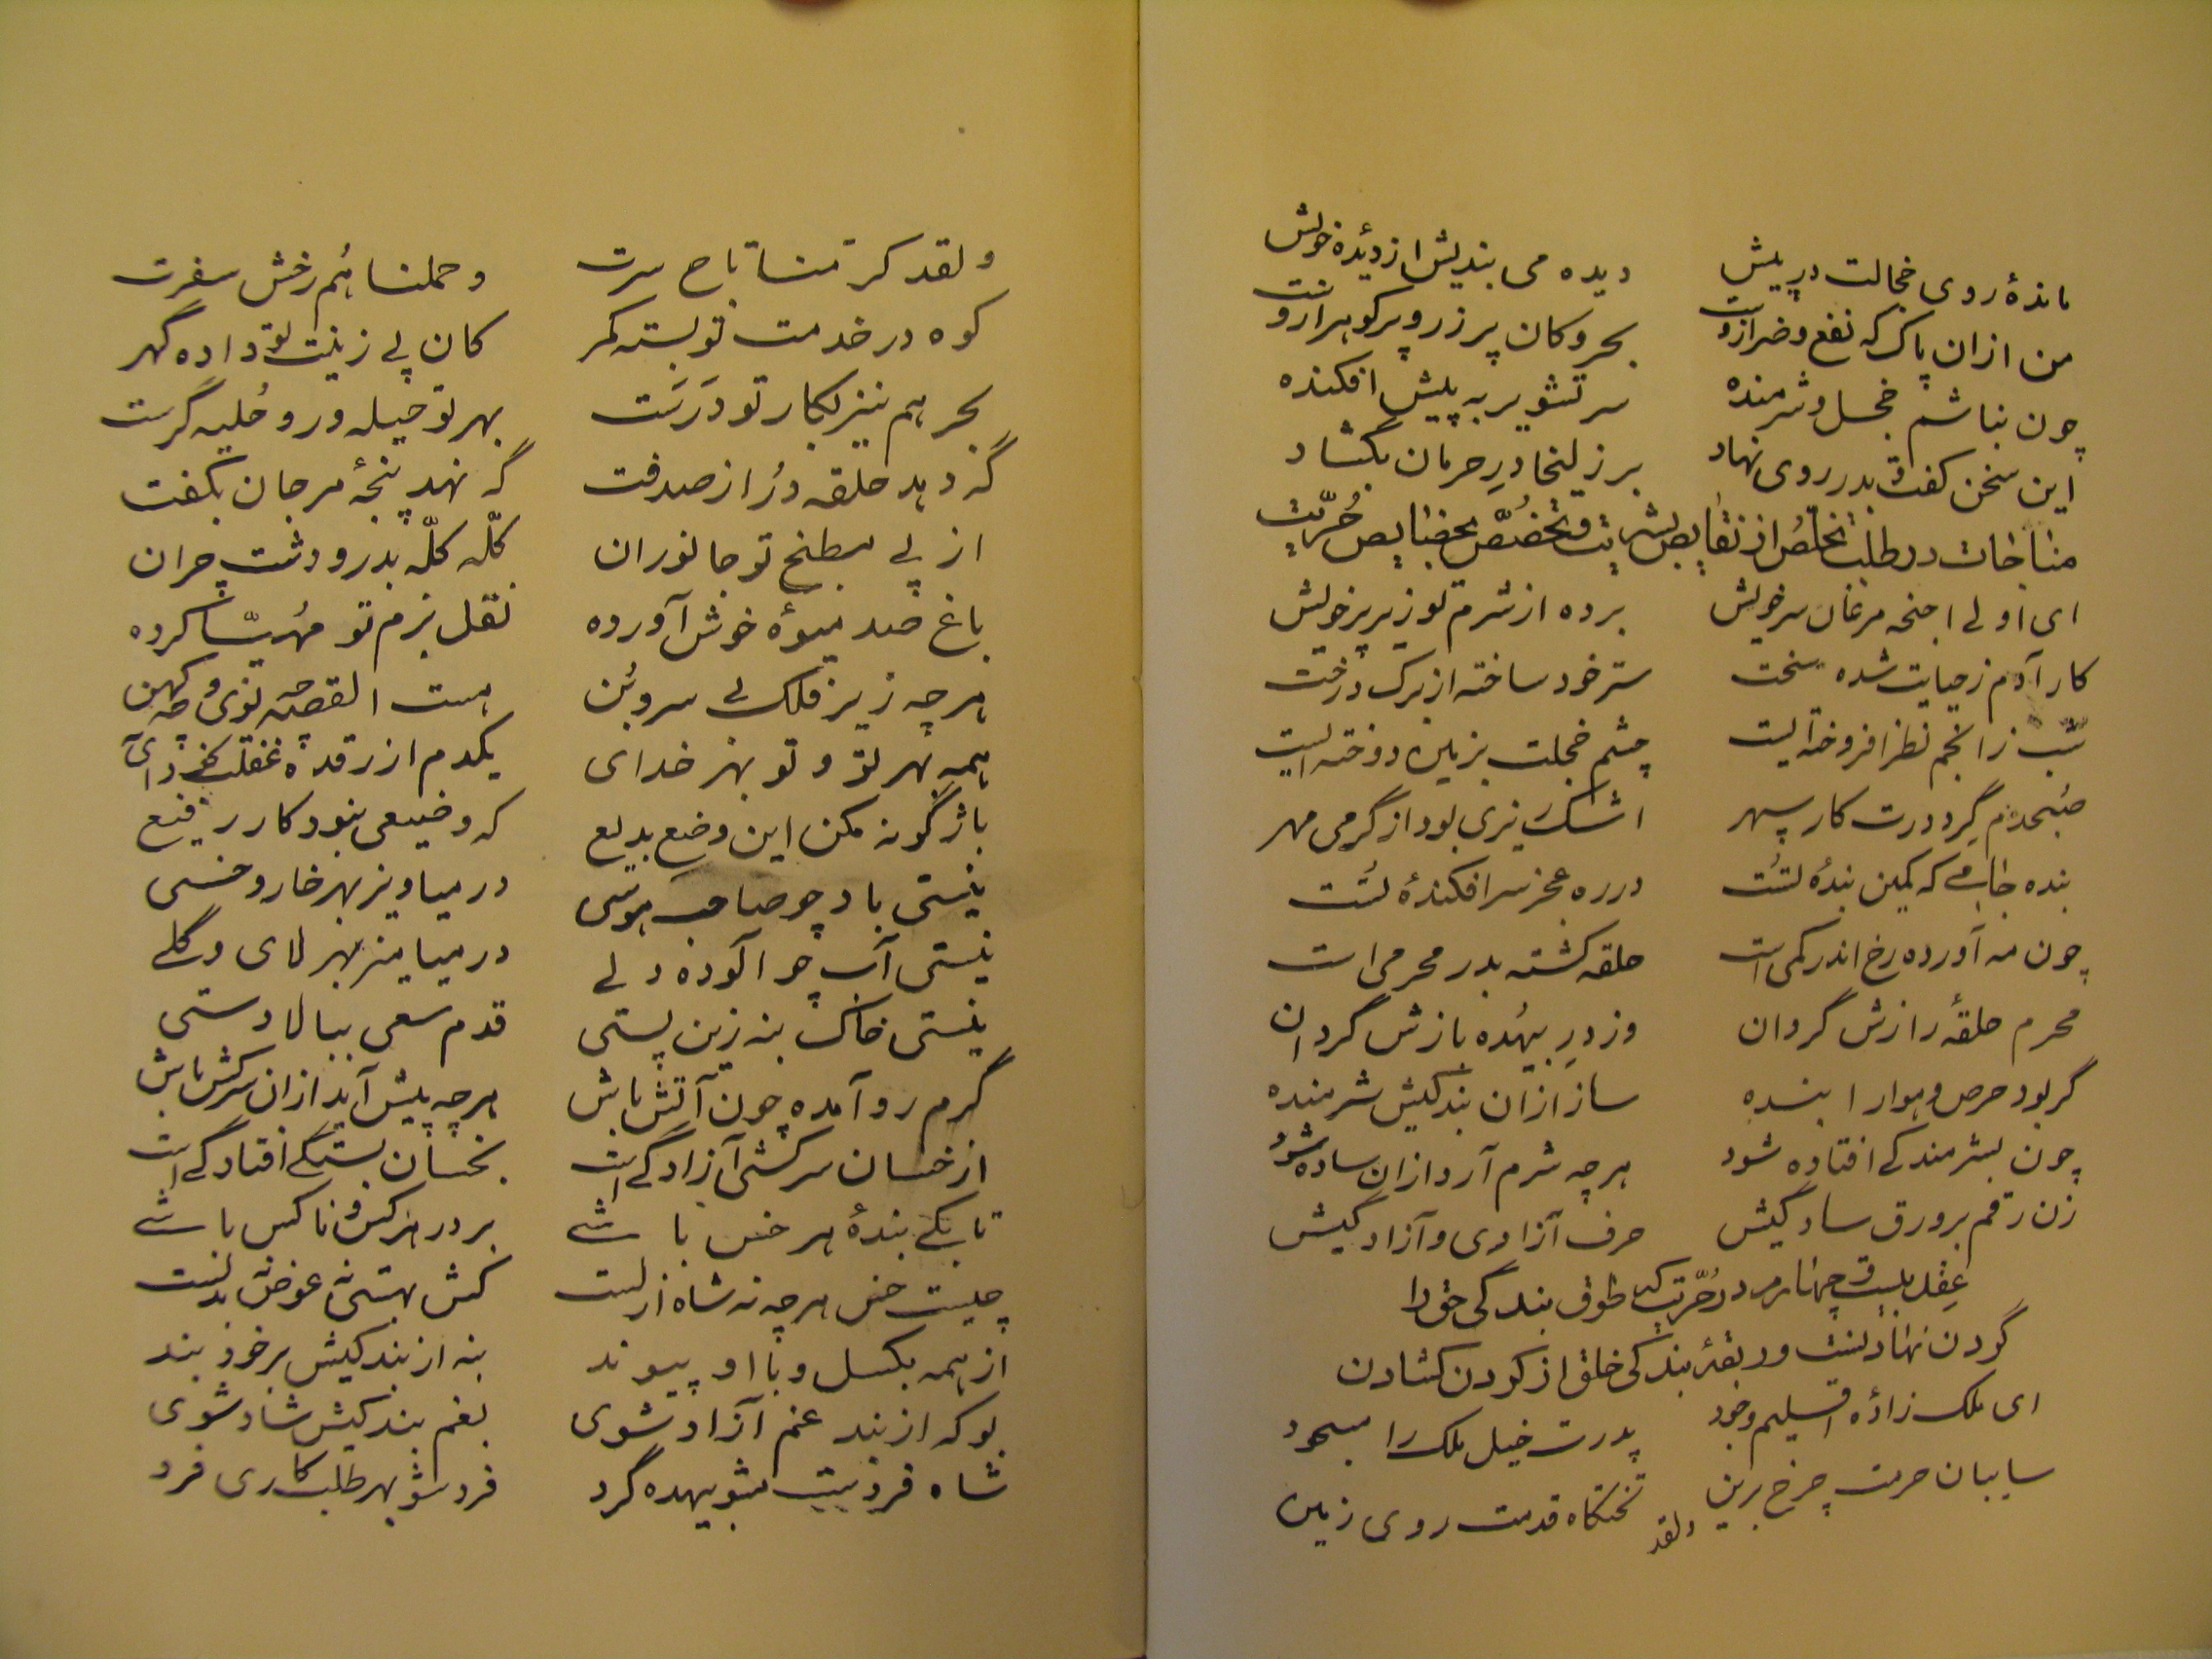 ماندهٔ روی خجالت در پیش دیده می بندیش از دیدهٔ خویش
من ازان پاک که نفع و ضر ازوست بحر و کان پر زر و پر گوهر ازوست
چون نباشم خجل و شرمنده سر تشویر به پیش افکنده
این سخن گفت و بدر روی نهاد بر زلیخا درِ حرمان بگشاد
مناجات در طلب تخلّص از نقایص بشریت و تخصّص بخصایص حُرّیت
ای اولی اجنحه مرغان سر خویش برده از شرم تو زیر پر خویش
کار آدم ز حیایت شده سخت ستر خود ساخته از برک درخت
شب ز انجم نظر افروخته‌ایست چشم خجلت بزمین دوخته ایست
صبحدم گرد درت کار سپهر اشک ریزی بود از گرمی مهر
بنده جامی که کمین بندهٔ تست در ره عجز سر افکندهٔ تست
چون مه آورده رخ اندر کمی است حلقه کشته بدر محرمی است
محرم حلقهٔ رازش گردان وز در بیهُده بازش گردان
گر بود حرص و هوا را بنده ساز ازان بندکیش شرمنده
چون بشرمندکی افتاده شود هر چه شرم آرد ازان ساده شود
زن رقم بر ورق سادگیش حرف آزادی و آزادگیش
عقد بیست و چهارم در حُرّیت که طوق بندگی حق را
گردن نهادنست و ربقهٔ بندگی خلق از گردن کشادن
ای ملک زادهٔ اقلیم وجود پدرت خیل ملک را مسجود
سایبان حرمت چرخ برین تختگاه قدمت روی زمین
ولقد
ولقد کرّمنا تاج سرت وحملناهُم رخش سفرت
کوه در خدمت تو بسته کمر کان پی زینت تو داده گهر
بحر هم نیز بکار تو دَرَست بهر تو حیله ور و حُلیه گرست
گه دهد حلقه دُر از صدفت گه نهد پنجهٔ مرجان بکفت
از پی مطبخ تو جانوران گلّه گلّه بدر و دشت چران
باغ صد میوهٔ خوش آورده نقل بزم تو مُهیّا کرده
هر چه زیر فلک بی سر و بُن هست القصه چه نوی و چه کهن
همه بهر تو و تو بهر خدای یکدم از رقدهٔ غفلت بخود آی
باژگونه مکن این وضع بدیع که وضیعی نبود کار رفیع
نیستی باد چو صاحب هوسی در میاویز بهر خار و خسی
نیستی آب چو آلوده دلی در میامیز بهر لای و گلی
نیستی خاک بنه زین پستی قدم سعی ببالا دستی
گرم رو آمده چون آتش باش هر چه پیش آید ازان سرکش باش
از خسان سرکشی آزادگی است بخسان بستگی افتادگی است
تا بکی بندهٔ هر خس باشی بر در هر کس و ناکس باشی
چیست خس هر چه نه شاه ازلست کش بهستی نه عوض نه بدلست
از همه بکسل و با او پیوند بنه از بندکیش بر خود بند
بو که از بند غم آزاد شوی بغم بندکیش شاد شوی
شاه فردیت مشو بیهده گرد فرد شو بهر طلبکاری فرد